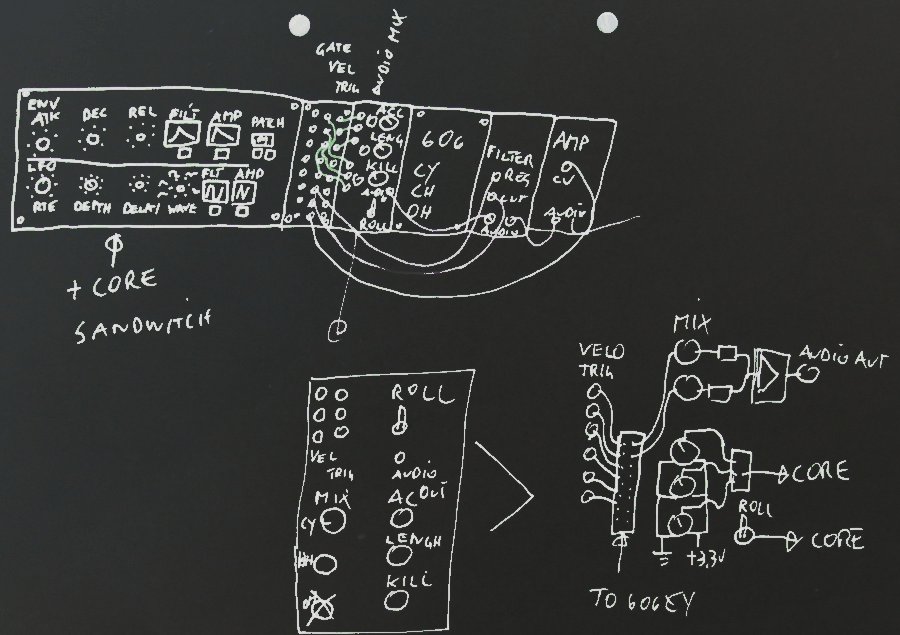 GATE
VEL
TRIG
AUDIO MIX
ENV
ATK
DEC
REL
FILT
AMP
PATCH
LFO
RTE
DEPTH
DELAY
WAVE
FLT
AMP
ACC
LENG
KILL
ROLL
606
CY
CH
OH
FILTER
RES
CUT
AUDIO
AMP
CV
AUDIO
+ CORE
SANDWITCH
ROLL
VEL
TRIG
AUDIO
OUT
MIX
AC
CY
LENGH
HH
KILL
VELO
TRIG
MIX
AUDIO AUT
CORE
ROLL
CORE
+3,3V
TO 606EY